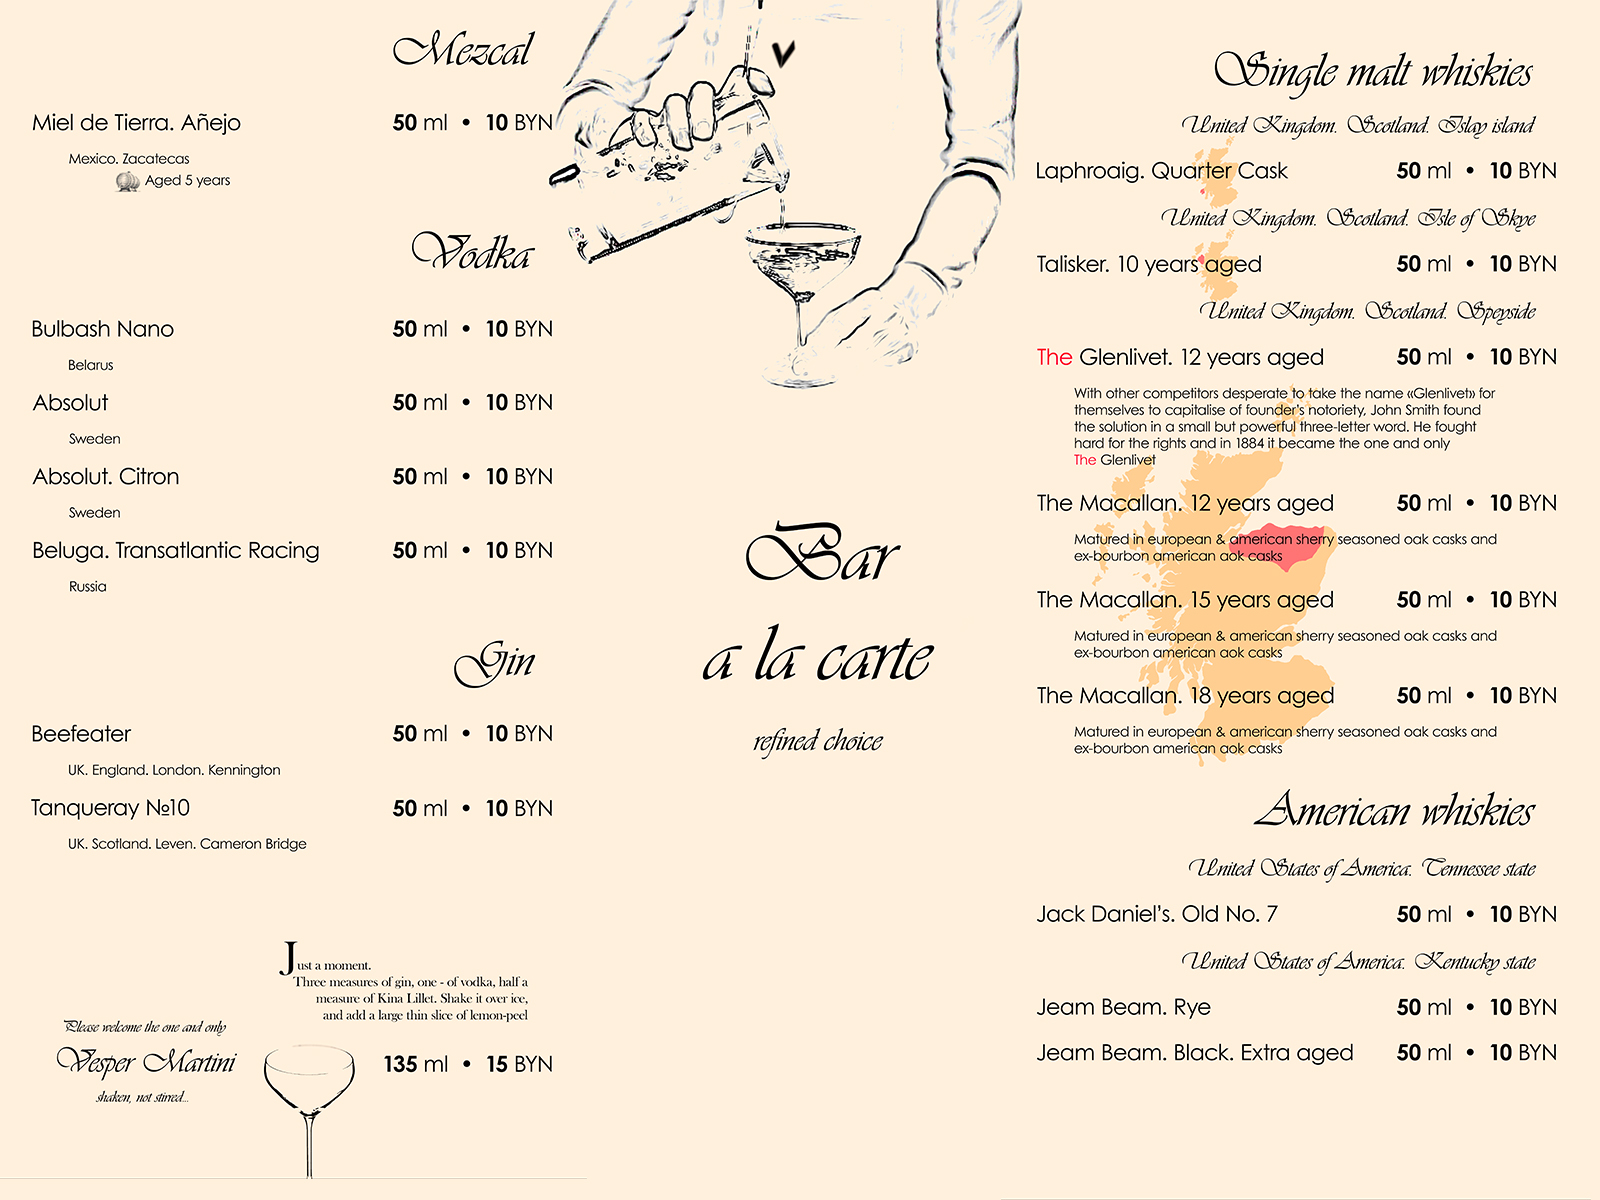 Mezcal
Miel de Tierra. Añejo 50 ml • 10 BYN
Mexico. Zacatecas
Aged 5 years
Vodka
Bulbash Nano 50 ml • 10 BYN
Belarus
Absolut 50 ml • 10 BYN
Sweden
Absolut. Citron 50 ml • 10 BYN
Sweden
Beluga. Transatlantic Racing 50 ml • 10 BYN
Russia
Gin
Beefeater 50 ml • 10 BYN
UK. England. London. Kennington
Tanqueray №10 50 ml • 10 BYN
UK. Scotland. Leven. Cameron Bridge
Just a moment.
Three measures of gin, one - of vodka, half a
measure of Kina Lillet. Shake it over ice,
and add a large thin slice of lemon-peel
Please welcome the one and only
Vesper Martini
shaken, not stirred...
135 ml • 15 BYN
Bar
a la carte
refined choice
Single malt whiskies
United Kingdom. Scotland. Islay island
Laphroaig. Quarter Cask 50 ml • 10 BYN
United Kingdom. Scotland. Isle of Skye
Talisker. 10 years aged 50 ml • 10 BYN
United Kingdom. Scotland. Speyside
The Glenlivet. 12 years aged 50 ml • 10 BYN
With other competitors desperate to take the name «Glenlivet» for
themselves to capitalise of founder's notoriety, John Smith found
the solution in a small but powerful three-letter word. He fought
hard for the rights and in 1884 it became the one and only
The Glenlivet
The Macallan. 12 years aged 50 ml • 10 BYN
Matured in european & american sherry seasoned oak casks and
ex-bourbon american aok casks
The Macallan. 15 years aged 50 ml • 10 BYN
Matured in european & american sherry seasoned oak casks and
ex-bourbon american aok casks
The Macallan. 18 years aged 50 ml • 10 BYN
Matured in european & american sherry seasoned oak casks and
ex-bourbon american aok casks
American whiskies
United States of America. Tennessee state
Jack Daniel's. Old No. 7 50 ml • 10 BYN
United States of America. Kentucky state
Jeam Beam. Rye 50 ml • 10 BYN
Jeam Beam. Black. Extra aged 50 ml • 10 BYN